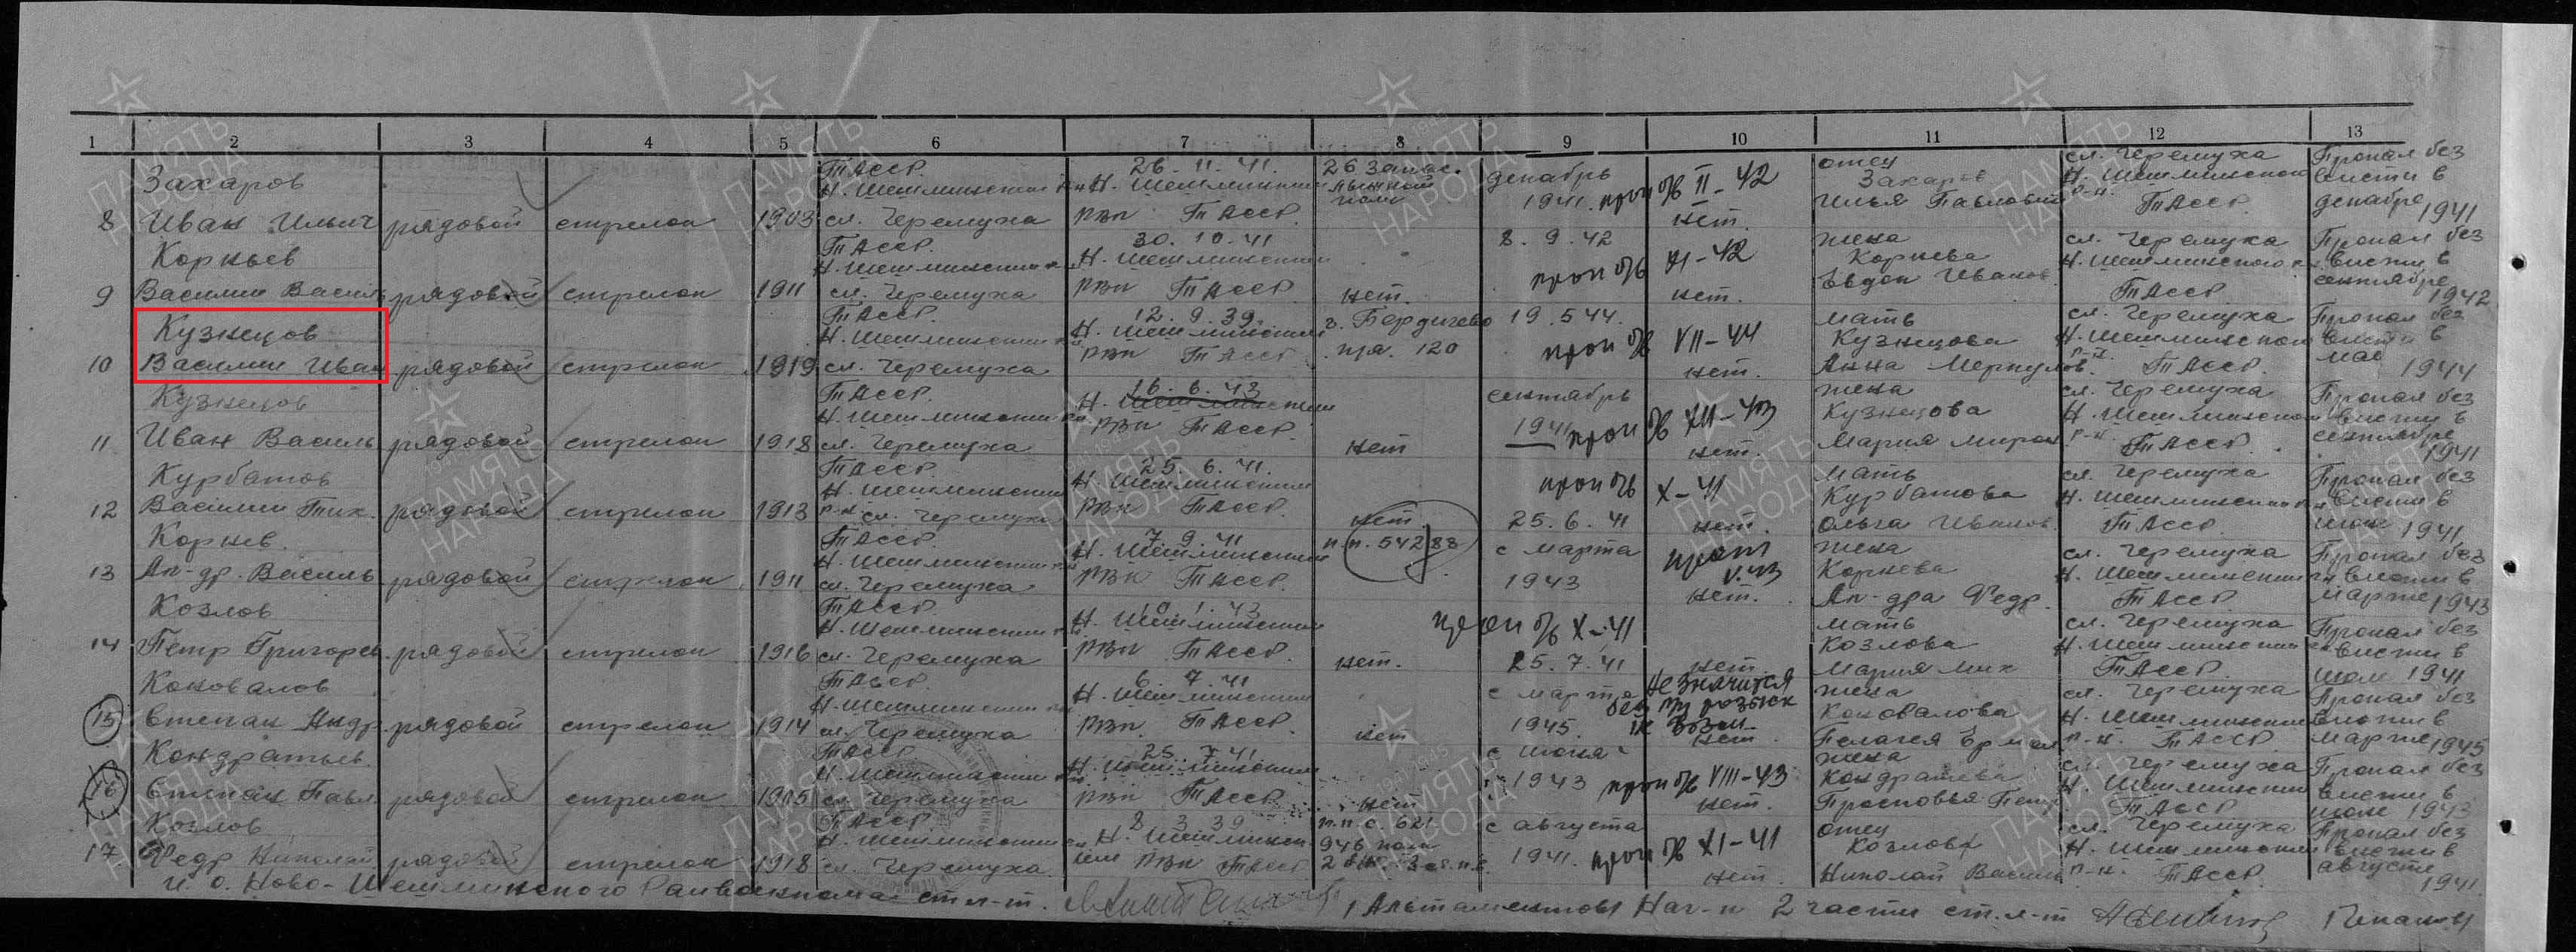 1 2 3 4 5 6 7 8 9 10 11 12 13
Захаров ТАССР 26.11.41. 26 запас. декабрь отец сл. Черемуха Пропал без
Н. Шешминский Н. Шешминский лыжный полк 1941. проп б/в II-42 Захаров Н. Шешминского вести в
8 Иван Ильич рядовой стрелок 1903 сл. Черемуха РВК ТАССР нет. Илья Павлович р-н. ТАССР. декабре 1941
Корньев ТАССР. 30.10.41 8.9.42 жена сл. Черемуха Пропал без
Н. Шешминский Н. Шешминский проп б/в XI-42 Корнева Н. Шешминского вести в
9 Василий Василь рядовой стрелок 1911 сл. Черемуха РВК ТАССР нет. нет. Евдок Иванов ТАССР сентябре 1942
Кузнецов ТАССР. 12.9.39. г. Бердичево 19.5.44. мать сл. Черемуха Пропал без
Н. Шешминский Н. Шешминский п/я. 120 проп б/в VII-44 Кузнецова Н. Шешминского вести в
10 Василий Иван рядовой стрелок 1919 сл. Черемуха РВК ТАССР нет. Анна Меркулов. р-н. ТАССР. мае 1944
Кузнецов ТАССР. 16.6.43 сентябрь жена сл. Черемуха Пропал без
Н. Шешминский Н. Шешминский 1941 проп б/в XII-43 Кузнецова Н. Шешминского вести в
11 Иван Василь рядовой стрелок 1918 сл. Черемуха РВК ТАССР. нет нет. Мария Мирон р-н. ТАССР. сентябре 1941
Курбатов ТАССР. 25.6.41. мать сл. Черемуха Пропал без
Н. Шешминский Н. Шешминский проп б/в X-41 Курбатова Н. Шешминский вести в
12 Василий Тих. рядовой стрелок 1913 р-н сл. Черемуха РВК ТАССР. нет. 25.6.41 нет. Ольга Иванов. ТАССР. 1941
Корнев. ТАССР. 7.9.41 п.п. 54288 с марта проп жена сл. Черемуха Пропал без
Н. Шешминский Н. Шешминский V.43 Корнева Н. Шешминский вести в
13 Ал-др. Василь рядовой стрелок 1911 сл. Черемуха РВК ТАССР. 1943 нет. Ал-дра Федр. ТАССР. марте 1943
Козлов ТАССР. 10.1.43 мать сл. Черемуха Пропал без
Н. Шешминский Н. Шешминский проп б/в X-41 Козлова Н. Шешминский вести в
14 Петр Григорев рядовой стрелок 1916 сл. Черемуха РВК ТАССР. нет. 25.7.41 нет. Мария Мих ТАССР. июле 1941
Коновалов ТАССР. 6.7.41 с марта не значится жена сл. Черемуха Пропал без
Н. Шешминский Н. Шешминский розыск Коновалова Н. Шешминский вести в
15 Степан Андр рядовой стрелок 1914 сл. Черемуха РВК. ТАССР нет 1945. нет Пелагея Ермол р-н. ТАССР. марте 1945
Кондратьев. ТАССР 25.7.41 с июня жена сл. Черемуха Пропал без
Н. Шешминский Н. Шешминский 1943 проп б/в VIII-43 Кондратева Н. Шешминский вести в
16 Степан Павл рядовой стрелок 1905 сл. Черемуха РВК ТАССР нет нет. Просковья Петр ТАССР июне 1943
Козлов ТАССР. 8.3.39 с августа отец сл. Черемуха Пропал без
Н. Шешминский Н. Шешминск 946 полк 1941. проп б/в XI-41 Козлов Н. Шешминский вести в
17 Федр Николай рядовой стрелок 1918 сл. Черемуха РВК ТАССР нет. Николай Василь р-н. ТАССР. августе 1941
И. о. Ново-Шешминского Райвоенкома ст л-т. Нач-к 2 части ст. л-т
ПАМЯТЬ НАРОДА